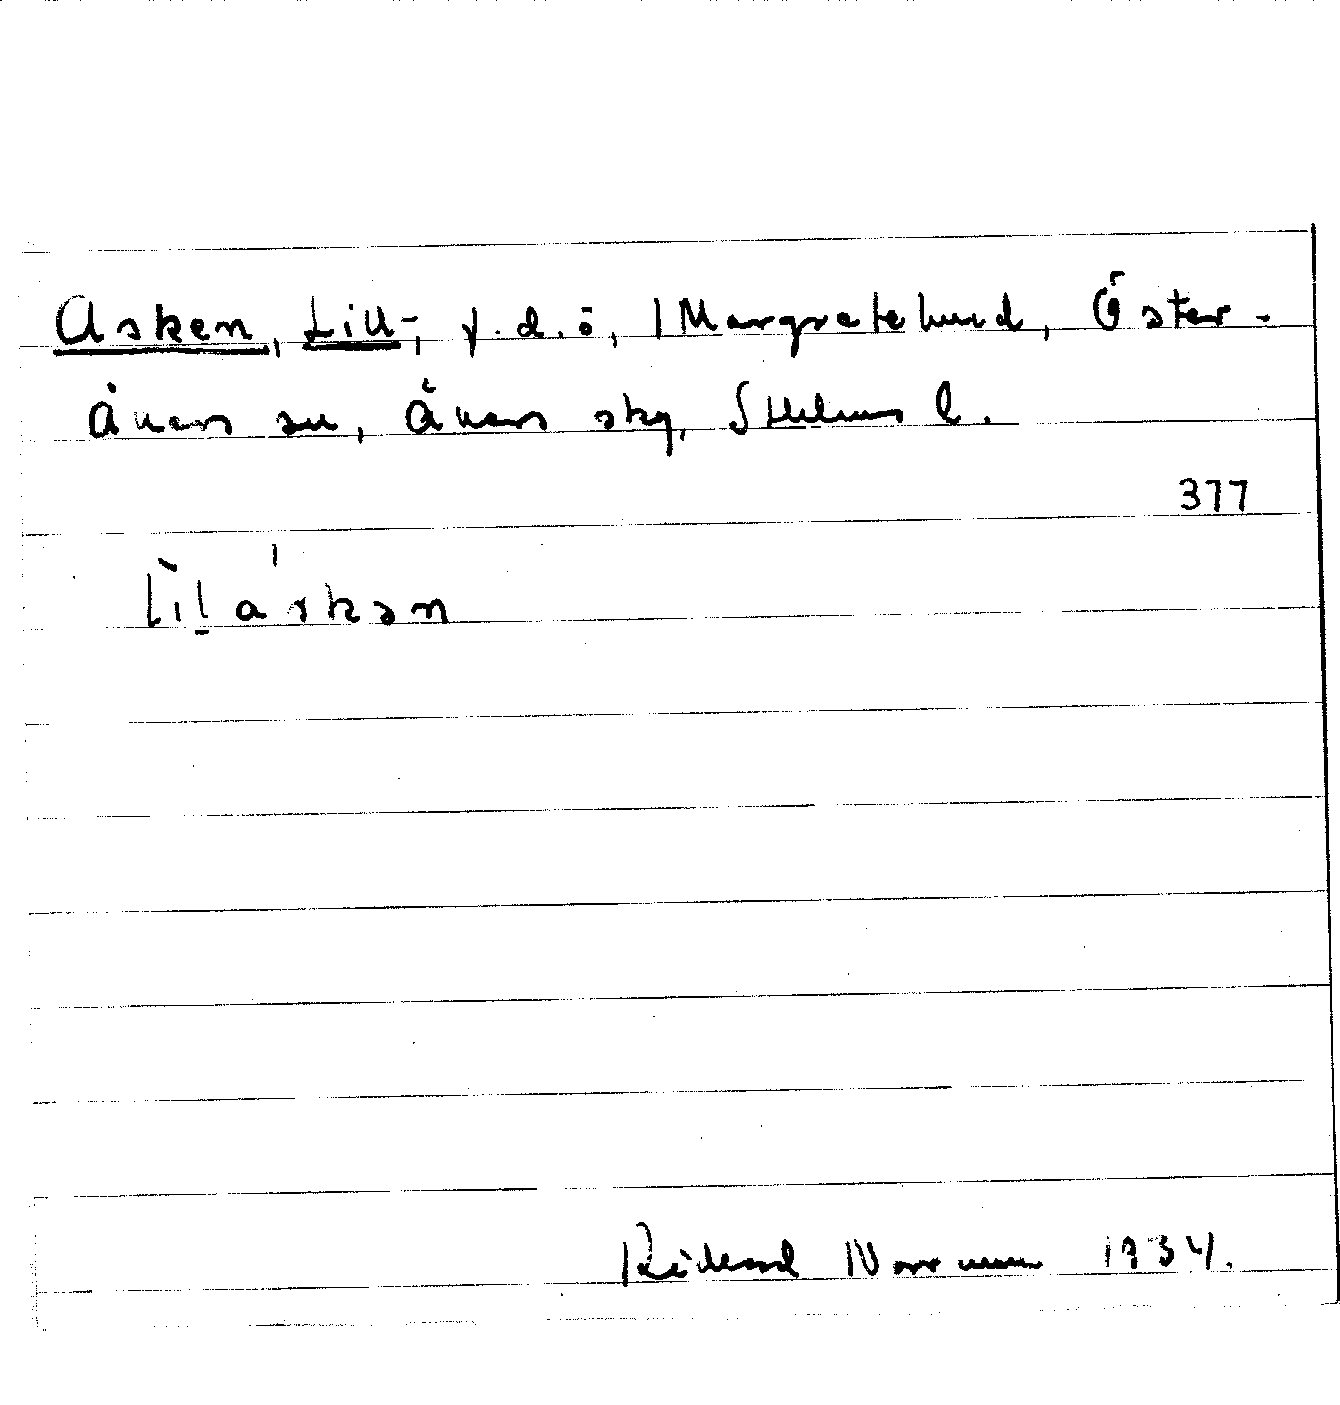 Asken, Lill-, f.d. ö, Margretelund, Öster-
åkers sn, Åkers skg, Sthlms l.
377
lìláskən
Rickard Norrman 1934.